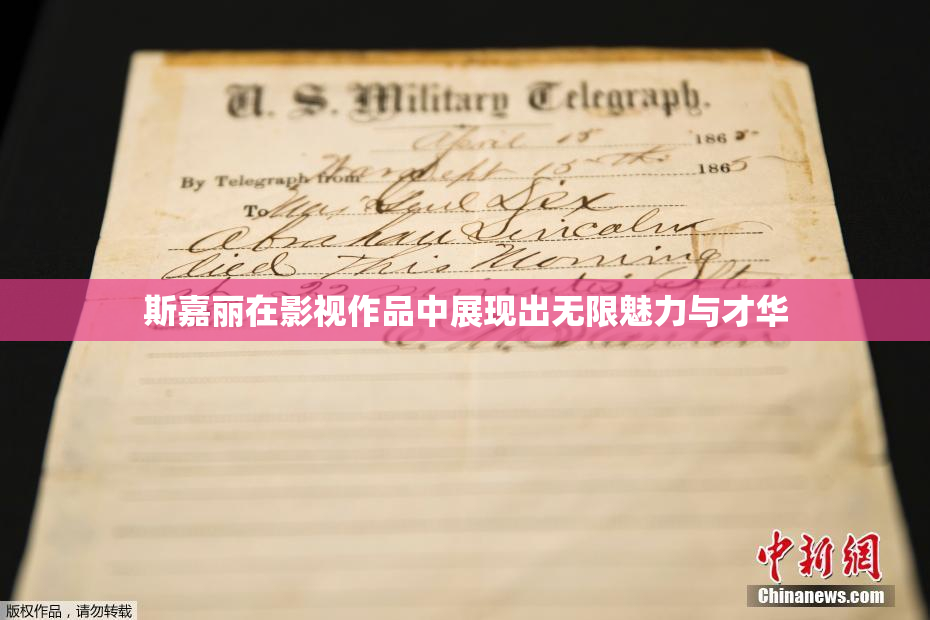 U. S. Military Telegraph.
April 15 1865
By Telegraph from War Dept 15th 1865
To Maj Genl Dix
Abraham Lincoln
died This Morning
at 22 minutes after
斯嘉丽在影视作品中展现出无限魅力与才华
E. M. Stanton
中新网
Chinanews.com
版权作品，请勿转载